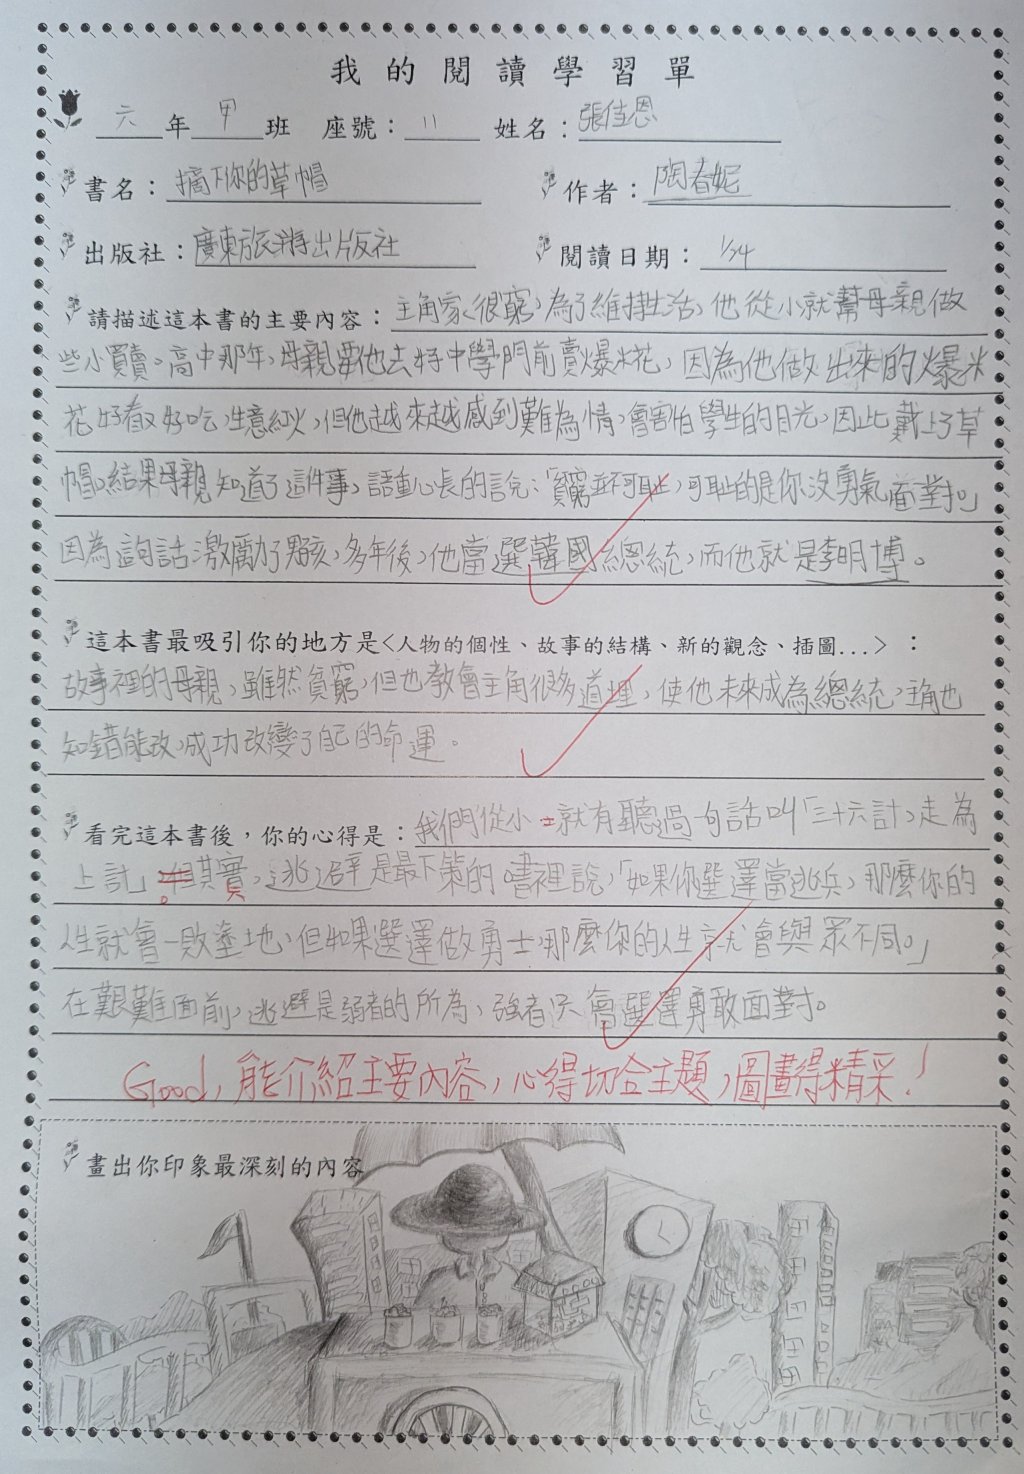 我的閱讀學習單
六年甲班 座號：11 姓名：張佳恩
書名：摘下你的草帽 作者：陶春妮
出版社：廣東旅游出版社 閱讀日期：1/24
請描述這本書的主要內容：主角家很窮，為了維持生活，他從小就幫母親做
些小買賣。高中那年，母親要他去女子中學門前賣爆米花，因為他做出來的爆米
花好看又好吃，生意紅火，但他越來越感到難為情，會害怕學生的目光，因此戴上了草
帽，結果母親知道了這件事，語重心長的說：「貧窮並不可恥，可恥的是你沒勇氣面對。」
因為這句話激勵了男孩，多年後，他當選韓國總統，而他就是李明博。
這本書最吸引你的地方是<人物的個性、故事的結構、新的觀念、插圖...>：
故事裡的母親，雖然貧窮，但也教會主角很多道理，使他未來成為總統，主角也
知錯能改，成功改變了自己的命運。
看完這本書後，你的心得是：我們從小就有聽過一句話叫「三十六計，走為
上計」。其實，逃避是最下策的，書裡說，「如果你選擇當逃兵，那麼你的
人生就會一敗塗地，但如果選擇做勇士，那麼你的人生就會與眾不同。」
在艱難面前，逃避是弱者的所為，強者只會選擇勇敢面對。
Good，能介紹主要內容，心得切合主題，圖畫得精采！
畫出你印象最深刻的內容